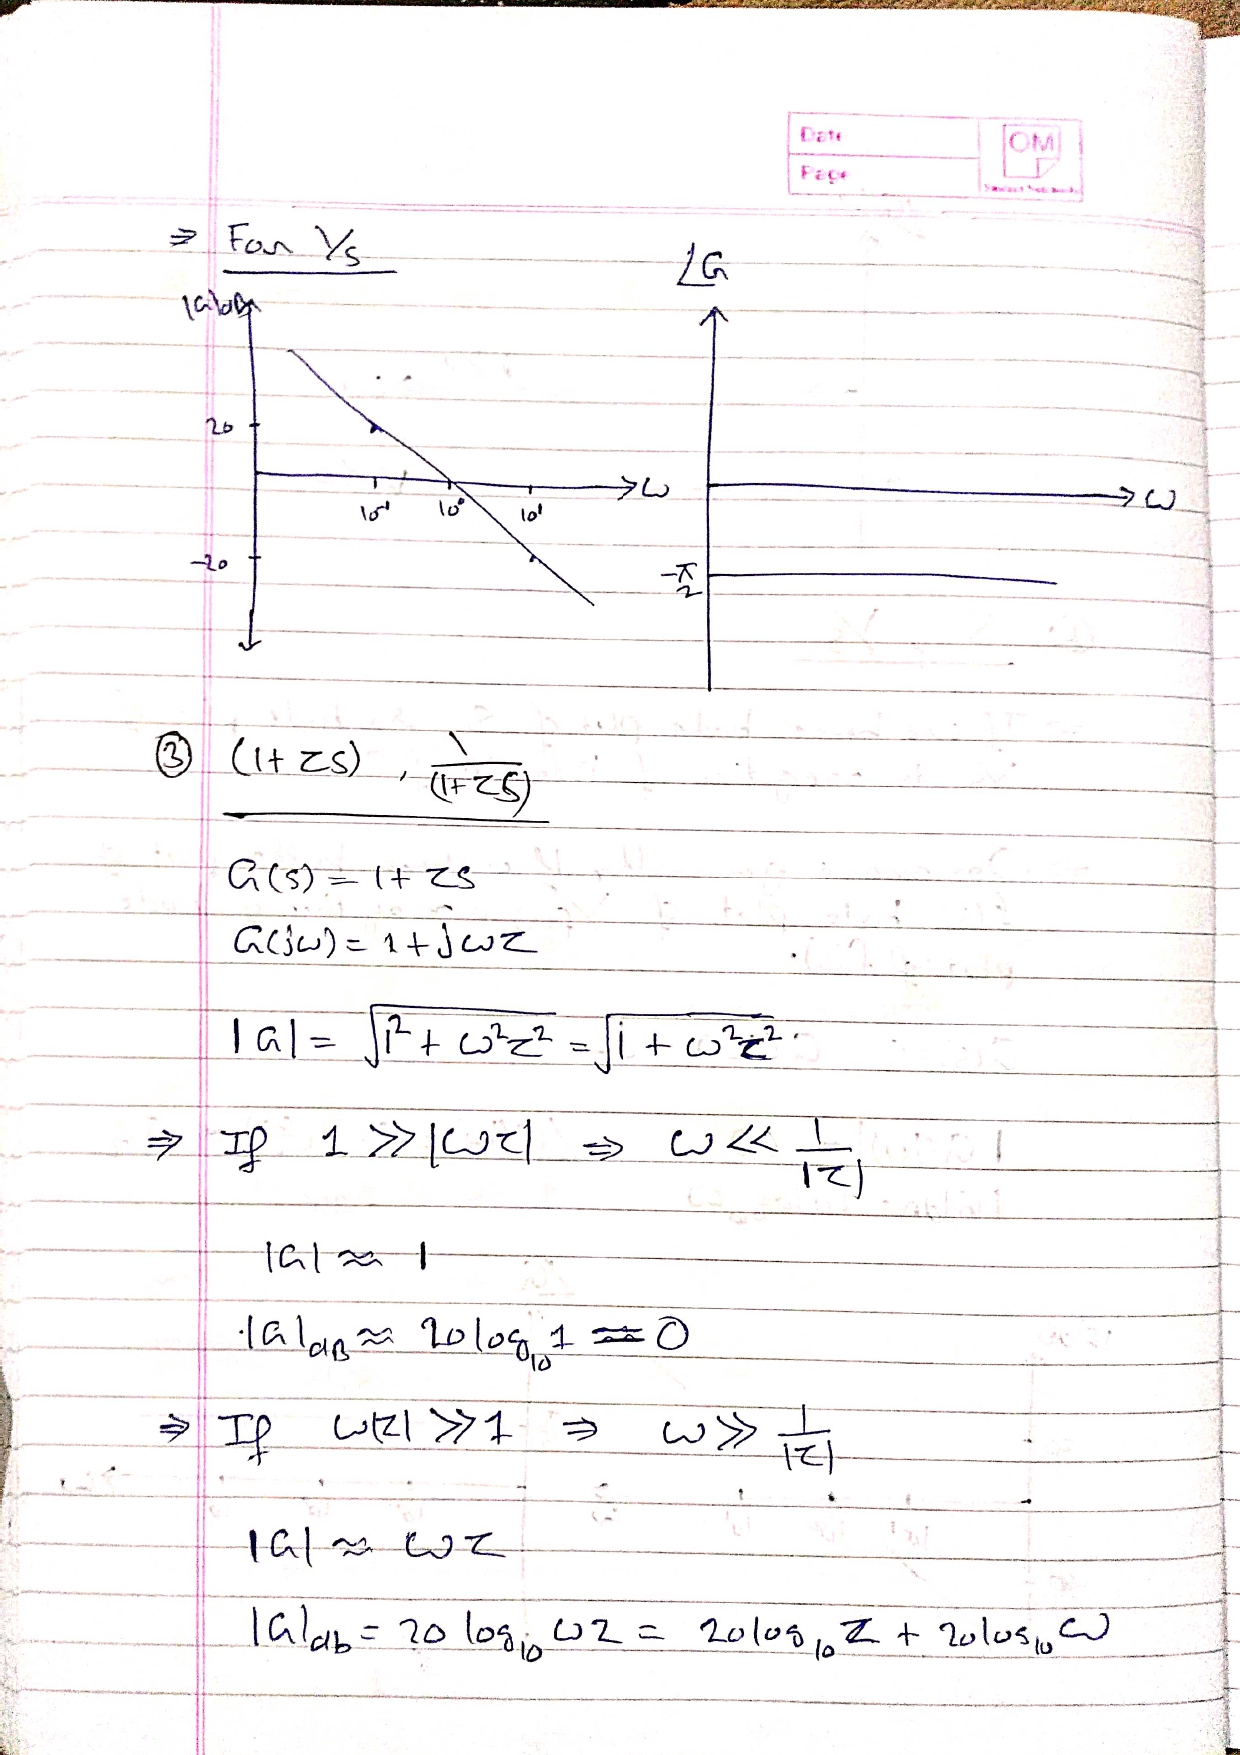 Date
Page
OM
⇒ For 1/s
|G|dB
∠G
20
10⁻¹ 10⁰ 10¹ → ω
→ ω
-20
-π/2
③ (1+τs) , 1/(1+τs)
G(s) = 1+τs
G(jω) = 1+jωτ
|G| = √(1² + ω²τ²) = √(1 + ω²τ²)
⇒ If 1 >> |ωτ| ⇒ ω << 1/|τ|
|G| ≈ 1
|G|dB ≈ 20 log₁₀ 1 ≈ 0
⇒ If ω|τ| >> 1 ⇒ ω >> 1/|τ|
|G| ≈ ωτ
|G|db = 20 log₁₀ ωτ = 20 log₁₀ τ + 20 log₁₀ ω